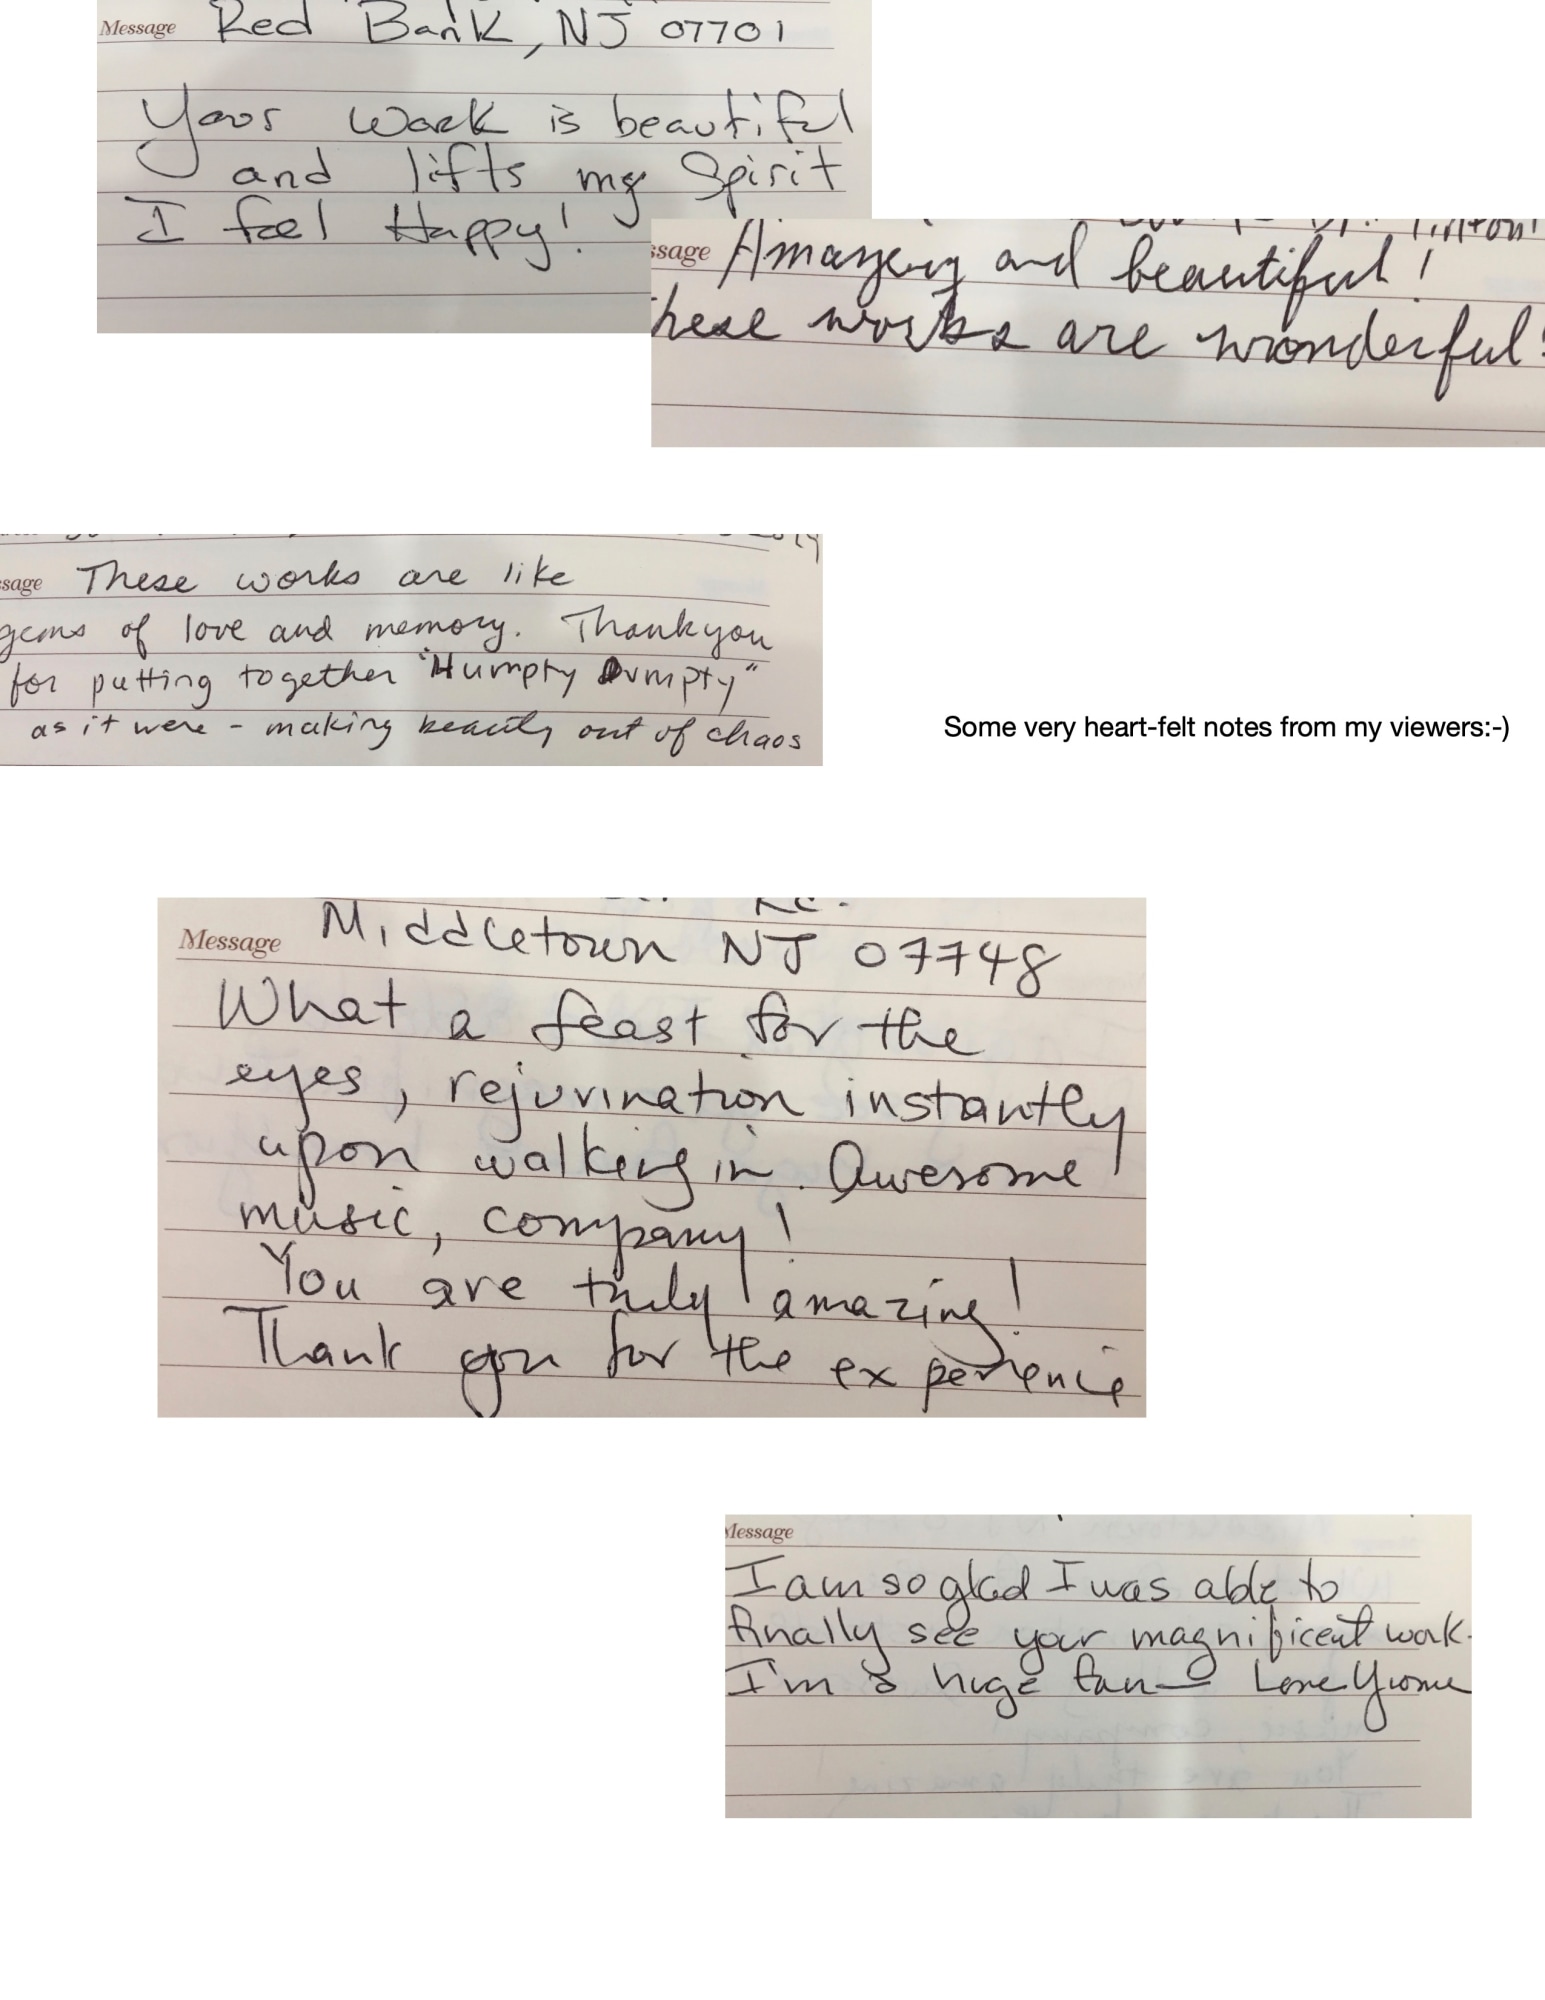 Message Red Bank, NJ 07701
Your work is beautiful
and lifts my Spirit
I feel Happy!
ssage Amazing and beautiful!
hese works are wonderful!
sage These works are like
gems of love and memory. Thank you
for putting together "Humpty Dumpty"
as it were - making beauty out of chaos
Some very heart-felt notes from my viewers:-)
Message Middletown NJ 07748
What a feast for the
eyes, rejuvination instantly
upon walking in. Awesome
music, company!
You are truly amazing!
Thank you for the experience
Message
I am so glad I was able to
finally see your magnificent work.
I'm a huge fan — Love